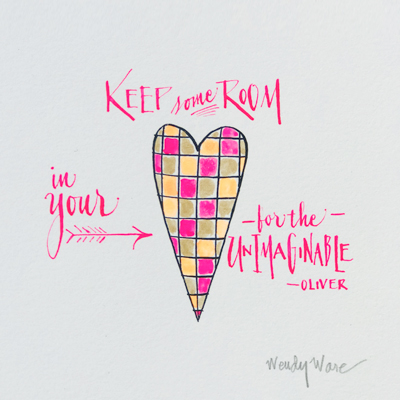 KEEP some ROOM
in
your
-for the-
UNIMAGINABLE
-OLIVER
Wendy Ware